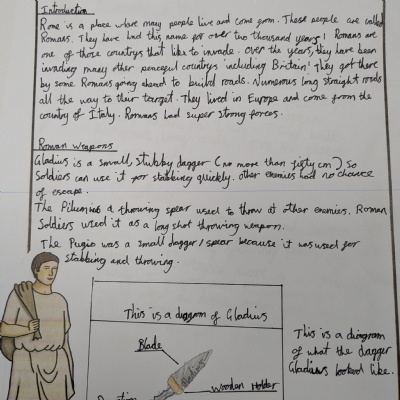 Introduction
Rome is a place where many people live and come from. These people are called
Romans. They have had this name for over two thousand years! Romans are
one of those countrys that like to invade. Over the years, they have been
invading many other peaceful countrys including Britain! They got there
by some Romans going ahead to build roads. Numerous long straight roads
all the way to their target. They lived in Europe and come from the
country of Italy. Romans had super strong forces.
Roman Weapons
Gladius is a small, stubby dagger (no more than fifty cm) so
Soldiers can use it for stabbing quickly. other enemies had no chance
of escape.
The Pilum is a throwing spear used to throw at other enemies. Roman
Soldiers used it as a long shot throwing weapon.
The Pugio was a small dagger/spear because it was used for
stabbing and throwing.
This is a diagram of Gladius
Blade
Wooden Holder
This is a diagram
of what the dagger
Gladius looked like.